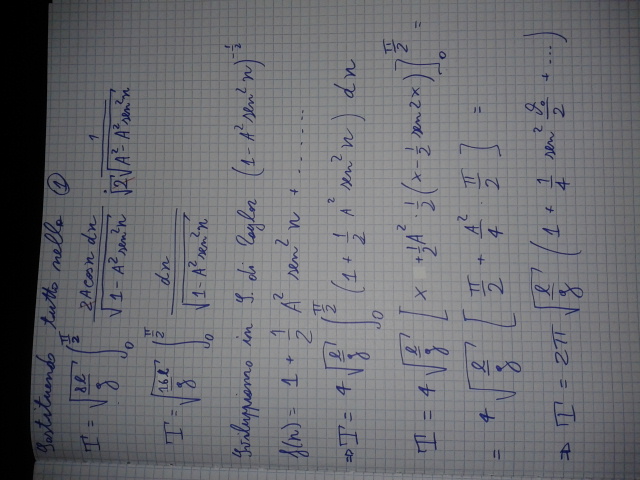 Sostituendo tutto nella ①
T = √(8l/g) ∫₀^{π/2} 2A cos x dx / √(1 - A² sen² x) · 1 / √2 √(A² - A² sen² x)
T = √(16l/g) ∫₀^{π/2} dx / √(1 - A² sen² x)
Sviluppiamo in S. di Taylor (1 - A² sen² x)^{-1/2}
f(x) = 1 + 1/2 A² sen² x + .......
⇒ T = 4 √(l/g) ∫₀^{π/2} (1 + 1/2 A² sen² x) dx
T = 4 √(l/g) [x + 1/2 A² · 1/2 (x - 1/2 sen 2x)]₀^{π/2} =
= 4 √(l/g) [π/2 + A²/4 · π/2] =
⇒ T = 2π √(l/g) (1 + 1/4 sen² ϑ₀/2 + ...)